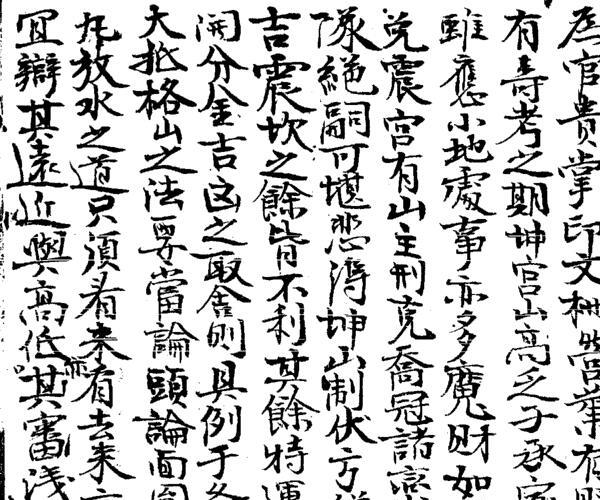 官貴掌印文
有壽考之期坤宮山高乏子承
雖應小地處事亦多魔財如
兌震宮有山主刑克喬冠諸
隊絕嗣可堪悲得坤山制伏方
吉震坎之餘皆不利其餘特運
開分金吉凶之取舍則具例于
大抵格山之法要當論頭論面
凡放水之道只須看來看去來
宜辯其遠近與高低其審淺